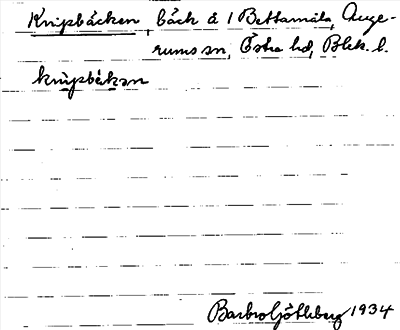 Knipbäcken, bäck å 1 Bettamåla, Auge-
rums sn, Östra hd, Blek. l.
knìpbẹkən
Barbro Göthberg 1934